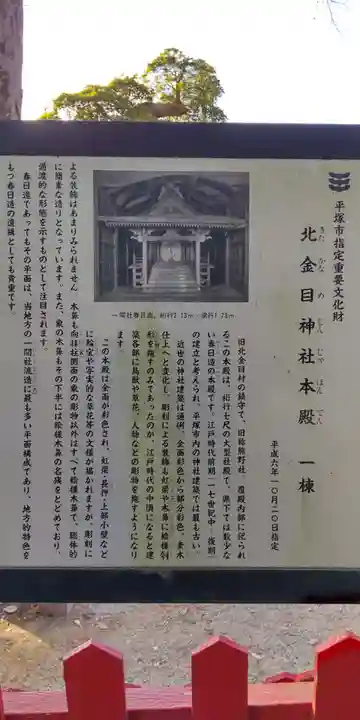 平塚市指定重要文化財
きたかなめじんじゃほんでん
北金目神社本殿 一棟
平成六年一〇月二〇日指定
旧北金目村の鎮守で、旧称熊野社。覆殿内部に祀られ
るこの本殿は、桁行七尺の大型社殿で、県下では数少な
い春日造の本殿です。江戸時代前期(一七世紀中・後期)
の建立と考えられ、平塚市内の神社建築では最も古い
近世の神社建築は通例、全面彩色から部分彩色、素木
仕上へと変化し、彫刻による装飾も虹梁や木鼻に絵様刳
形を施すのみであったのが、江戸時代の中頃になると建
築各部に鳥獣や草花、人物などの彫物を施すようになり
ます
この本殿は全面が彩色され、虹梁・長押・上部小壁など
に輪宝や写実的な草花等の文様が描かれますが、彫刻に
よる装飾はあまりみられません。木鼻も向拝柱側面の象の彫物以外はすべて絵様木鼻で、躯体的
に簡素な造りとなっています。また、象の木鼻もその下半には絵様木鼻の名残をとどめており、
過渡的な形態を示すものとして注目されます。
春日造であってもその平面は、当地方の一間社流造に最も多い平面構成であり、地方的特色を
もつ春日造の遺構としても貴重です。
一間社春日造。桁行2.12m 梁行1.73m